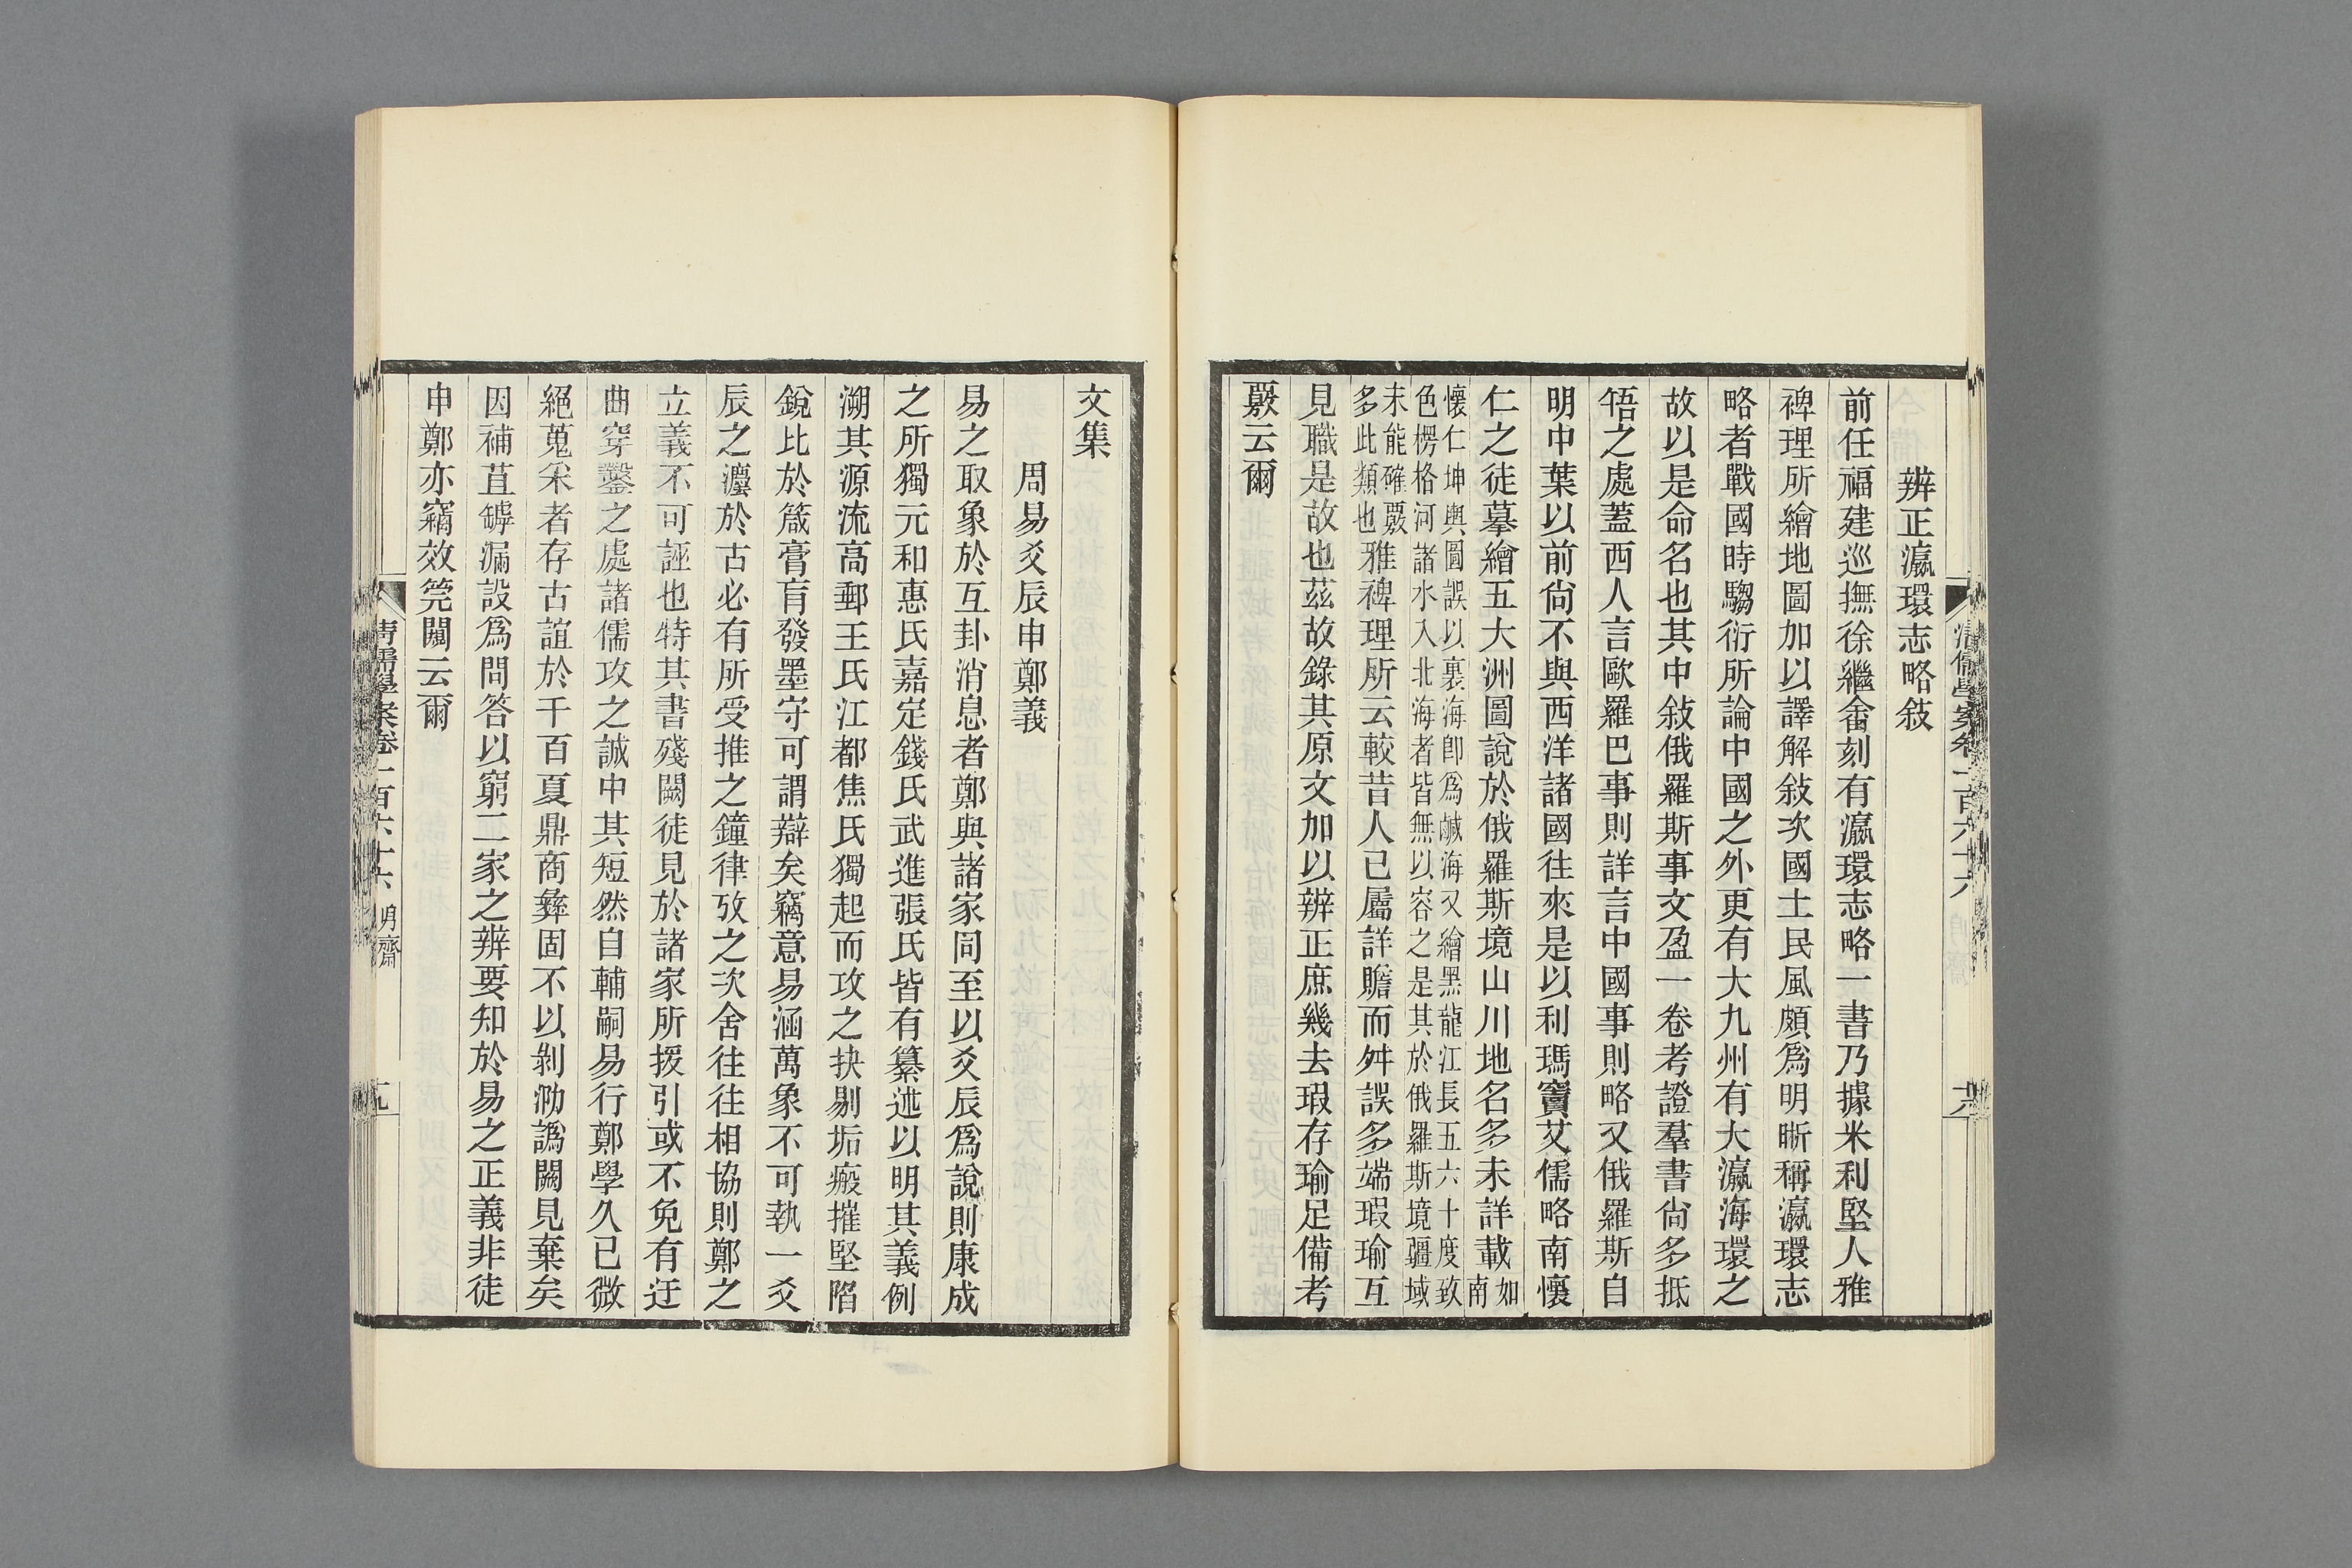 辨正瀛環志略敍
前任福建巡撫徐繼畬刻有瀛環志略一書乃據米利堅人雅
裨理所繪地圖加以譯解敍次國土民風頗爲明晰稱瀛環志
略者戰國時騶衍所論中國之外更有大九州有大瀛海環之
故以是命名也其中敍俄羅斯事文盈一卷考證羣書尙多抵
牾之處蓋西人言歐羅巴事則詳言中國事則略又俄羅斯自
明中葉以前尙不與西洋諸國往來是以利瑪竇艾儒略南懷
仁之徒摹繪五大洲圖說於俄羅斯境山川地名多未詳載如南
懷仁坤輿圖誤以裏海卽爲鹹海又繪黑龍江長五六十度致
色楞格河諸水入北海者皆無以容之是其於俄羅斯境疆域
未能確覈
多此類也雅裨理所云較昔人已屬詳贍而舛誤多端瑕瑜互
見職是故也茲故錄其原文加以辨正庶幾去瑕存瑜足備考
覈云爾
清儒學案卷一百六十六
文集
周易爻辰申鄭義
易之取象於互卦消息者鄭與諸家同至以爻辰爲說則康成
之所獨元和惠氏嘉定錢氏武進張氏皆有纂述以明其義例
溯其源流高郵王氏江都焦氏獨起而攻之抉剔垢瘢摧堅陷
銳比於箴膏肓發墨守可謂辯矣竊意易涵萬象不可執一爻
辰之灋於古必有所受推之鐘律攷之次舍往往相協則鄭之
立義不可誣也特其書殘闕徒見於諸家所援引或不免有迂
曲穿鑿之處諸儒攻之誠中其短然自輔嗣易行鄭學久已微
絕蒐采者存古誼於千百夏鼎商彝固不以剝泐譌闕見棄矣
因補苴罅漏設爲問答以窮二家之辨要知於易之正義非徒
申鄭亦竊效筦闚云爾
清儒學案卷一百六十六 月齋
十九